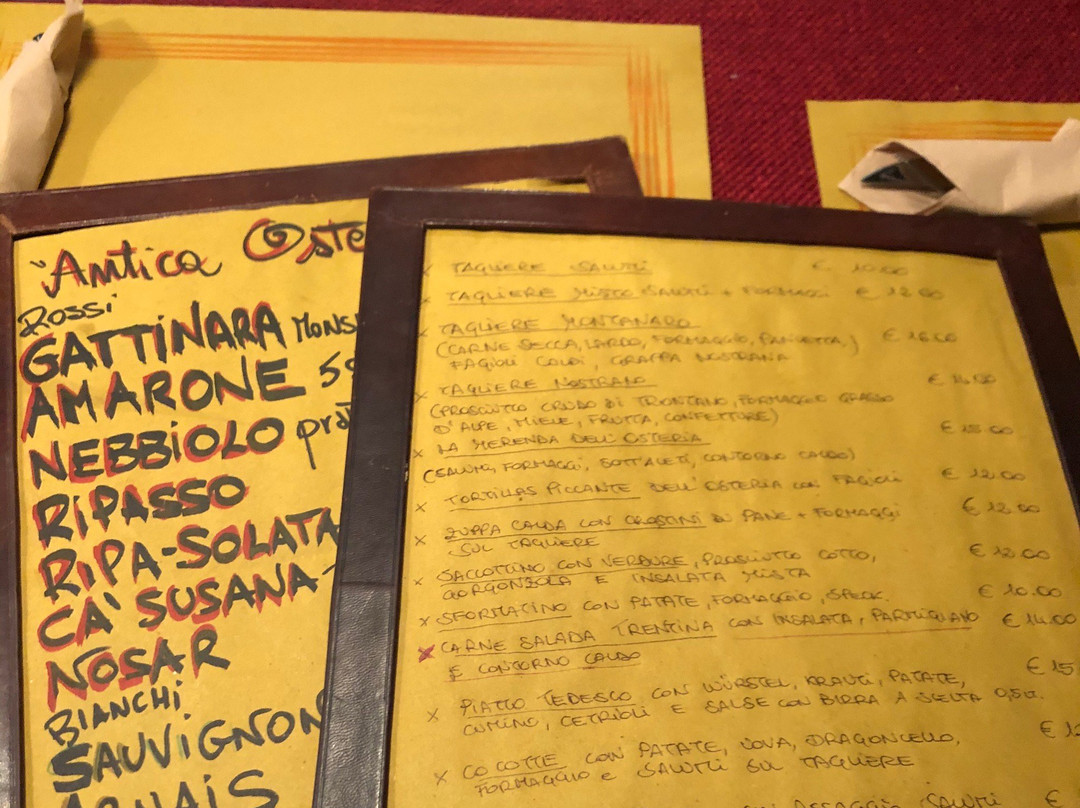 "Antica Oste
Rossi
GATTINARA MONS
AMARONE
NEBBIOLO
RIPASSO
RIPA-SOLATA
CA' SUSANA-
NOSAR
BIANCHI
SAUVIGNON
x TAGLIERE SALUMI € 10.00
x TAGLIERE MISTO SALUMI + FORMAGGI € 12.00
x TAGLIERE MONTANARO
(CARNE SECCA, LARDO, FORMAGGIO, PANCETTA,) € 16.00
FAGIOLI CALDI, GRAPPA NOSTRANA
x TAGLIERE NOSTRANO
(PROSCIUTTO CRUDO DI TRONTANO, FORMAGGIO GRASSO
D'ALPE, MIELE, FRUTTA, CONFETTURE)
x LA MERENDA DELL'OSTERIA
(SALUMI, FORMAGGI, SOTT'ACETI, CONTORNO CALDO)
x TORTILLAS PICCANTE DELL'OSTERIA CON FAGIOLI € 12.00
x ZUPPA CALDA CON CROSTINI DI PANE + FORMAGGI € 12.00
SUL TAGLIERE
x SACCOTTINO CON VERDURE, PROSCIUTTO COTTO, € 12.00
GORGONZOLA E INSALATA MISTA
x SFORMATINO CON PATATE, FORMAGGIO, SPECK. € 10.00
x CARNE SALADA TRENTINA CON INSALATA, PARMIGIANO € 14.00
E CONTORNO CALDO
x PIATTO TEDESCO CON WÜRSTEL, KRAUTI, PATATE, € 15
CUMINO, CETRIOLI E SALSE CON BIRRA A SCELTA 0,5L.
x COCOTTE CON PATATE, UOVA, DRAGONCELLO,
FORMAGGIO e SALUMI SUL TAGLIERE